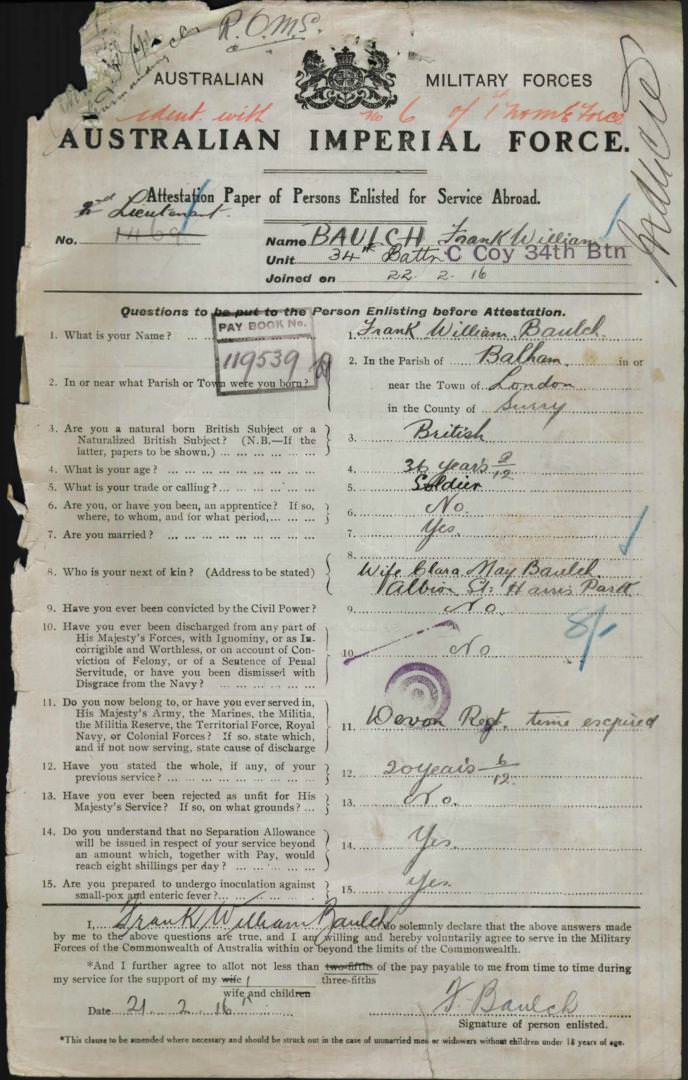 R.O.M.S.
AUSTRALIAN MILITARY FORCES
ident. with No 6 of
AUSTRALIAN IMPERIAL FORCE.
Attestation Paper of Persons Enlisted for Service Abroad.
2nd Lieutenant.
No. 1469 Name BAULCH Frank William
Unit 34th Battn C Coy 34th Btn
Joined on 22. 2. 16
Questions to be put to the Person Enlisting before Attestation.
PAY BOOK No.
119539
1. What is your Name? ... 1. Frank William Baulch
2. In or near what Parish or Town were you born? 2. In the Parish of Balham in or
near the Town of London
in the County of Surry
3. Are you a natural born British Subject or a
Naturalized British Subject? (N.B.—If the
latter, papers to be shown.) ... 3. British
4. What is your age? ... 4. 36 years 9/12
5. What is your trade or calling? ... 5. Soldier
6. Are you, or have you been, an apprentice? If so,
where, to whom, and for what period, ... 6. No
7. Are you married? ... 7. Yes.
8. Who is your next of kin? (Address to be stated) 8. Wife Clara May Baulch
Albion St. Harris Park
9. Have you ever been convicted by the Civil Power? 9. No.
8/-
10. Have you ever been discharged from any part of
His Majesty's Forces, with Ignominy, or as In-
corrigible and Worthless, or on account of Con-
viction of Felony, or of a Sentence of Penal
Servitude, or have you been dismissed with
Disgrace from the Navy? ... 10. No
11. Do you now belong to, or have you ever served in,
His Majesty's Army, the Marines, the Militia,
the Militia Reserve, the Territorial Force, Royal
Navy, or Colonial Forces? If so, state which,
and if not now serving, state cause of discharge 11. Devon Regt. time exquired
12. Have you stated the whole, if any, of your
previous service? ... 12. 20 years 6/12.
13. Have you ever been rejected as unfit for His
Majesty's Service? If so, on what grounds? ... 13. No.
14. Do you understand that no Separation Allowance
will be issued in respect of your service beyond
an amount which, together with Pay, would
reach eight shillings per day? ... 14. Yes.
15. Are you prepared to undergo inoculation against
small-pox and enteric fever? ... 15. Yes.
I, Frank William Baulch do solemnly declare that the above answers made
by me to the above questions are true, and I am willing and hereby voluntarily agree to serve in the Military
Forces of the Commonwealth of Australia within or beyond the limits of the Commonwealth.
*And I further agree to allot not less than two-fifths of the pay payable to me from time to time during
my service for the support of my wife three-fifths
wife and children
Date 21. 2. 16 F Baulch
Signature of person enlisted.
*This clause to be amended where necessary and should be struck out in the case of unmarried men or widowers without children under 18 years of age.